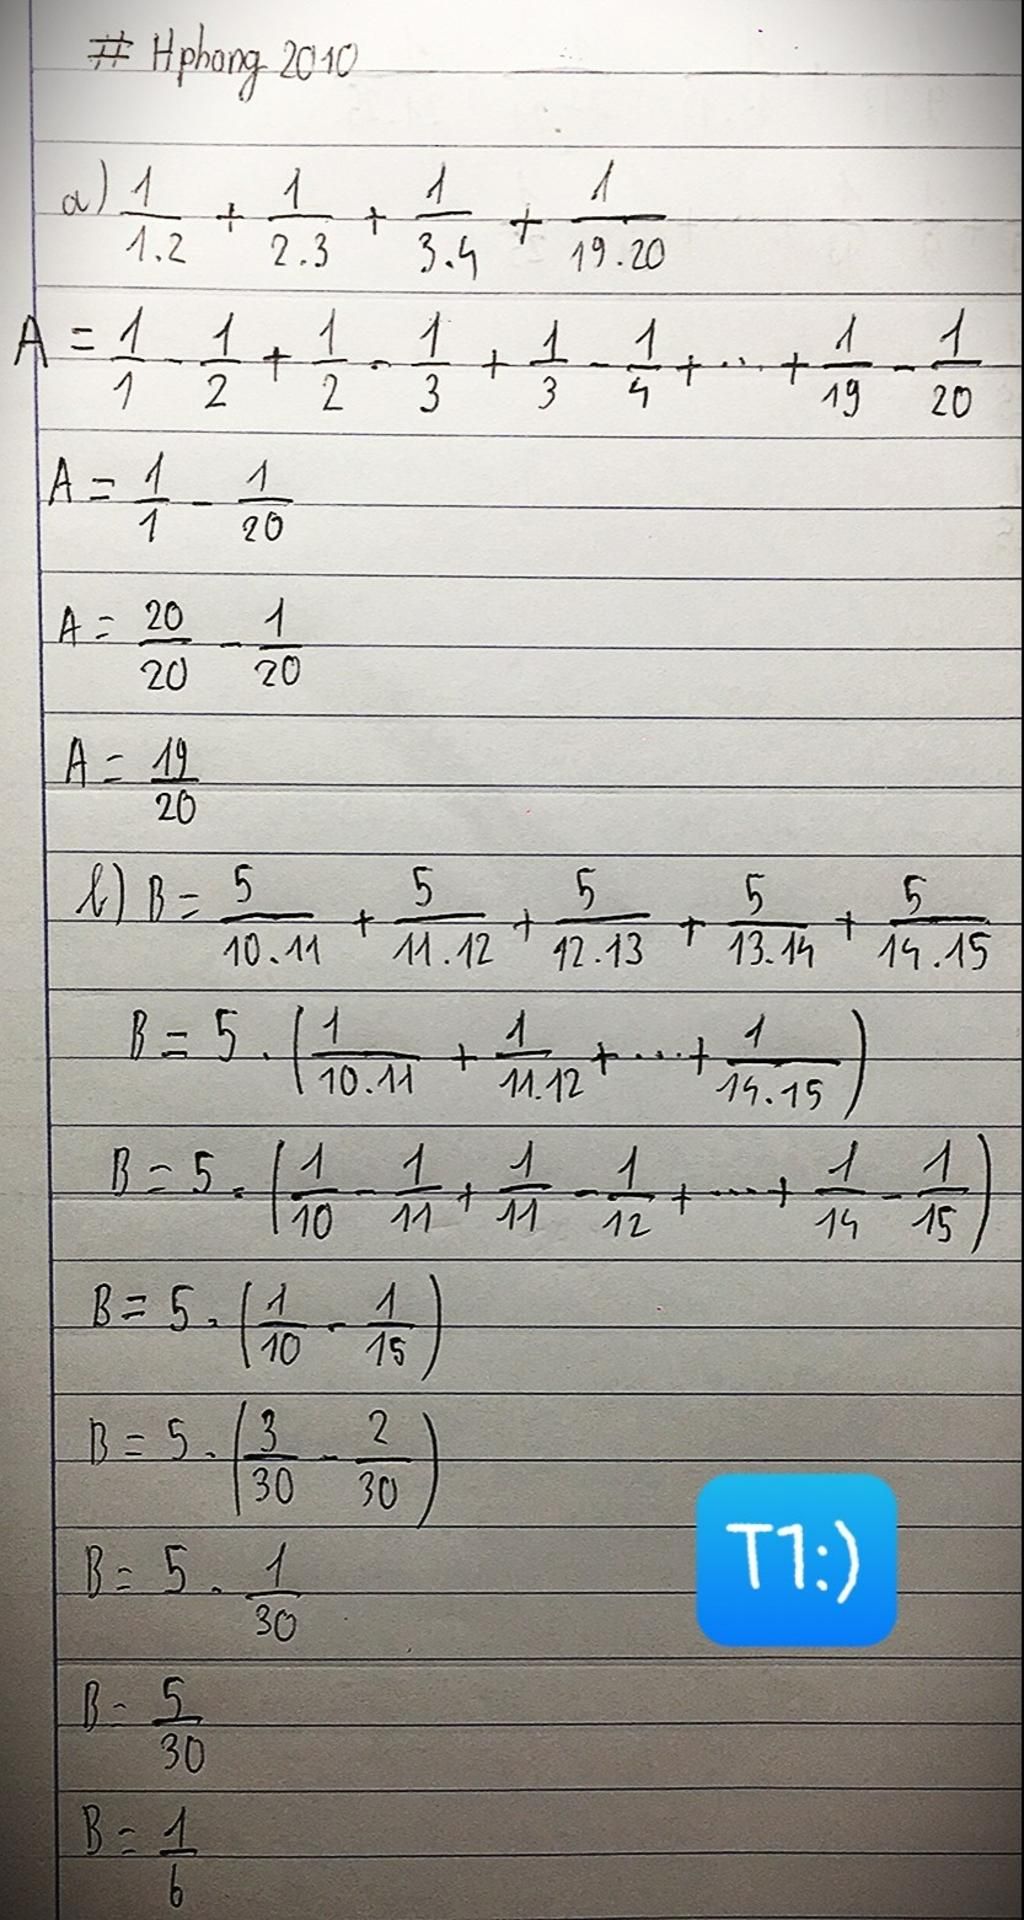 # Hphong 2010
a) 1/1.2 + 1/2.3 + 1/3.4 + 1/19.20
A = 1/1 - 1/2 + 1/2 - 1/3 + 1/3 - 1/4 + ... + 1/19 - 1/20
A = 1/1 - 1/20
A = 20/20 - 1/20
A = 19/20
b) B = 5/10.11 + 5/11.12 + 5/12.13 + 5/13.14 + 5/14.15
B = 5 . (1/10.11 + 1/11.12 + .... + 1/14.15)
B = 5 . (1/10 - 1/11 + 1/11 - 1/12 + .... + 1/14 - 1/15)
B = 5 . (1/10 - 1/15)
B = 5 . (3/30 - 2/30)
B = 5 . 1/30
T1:)
B = 5/30
B = 1/6